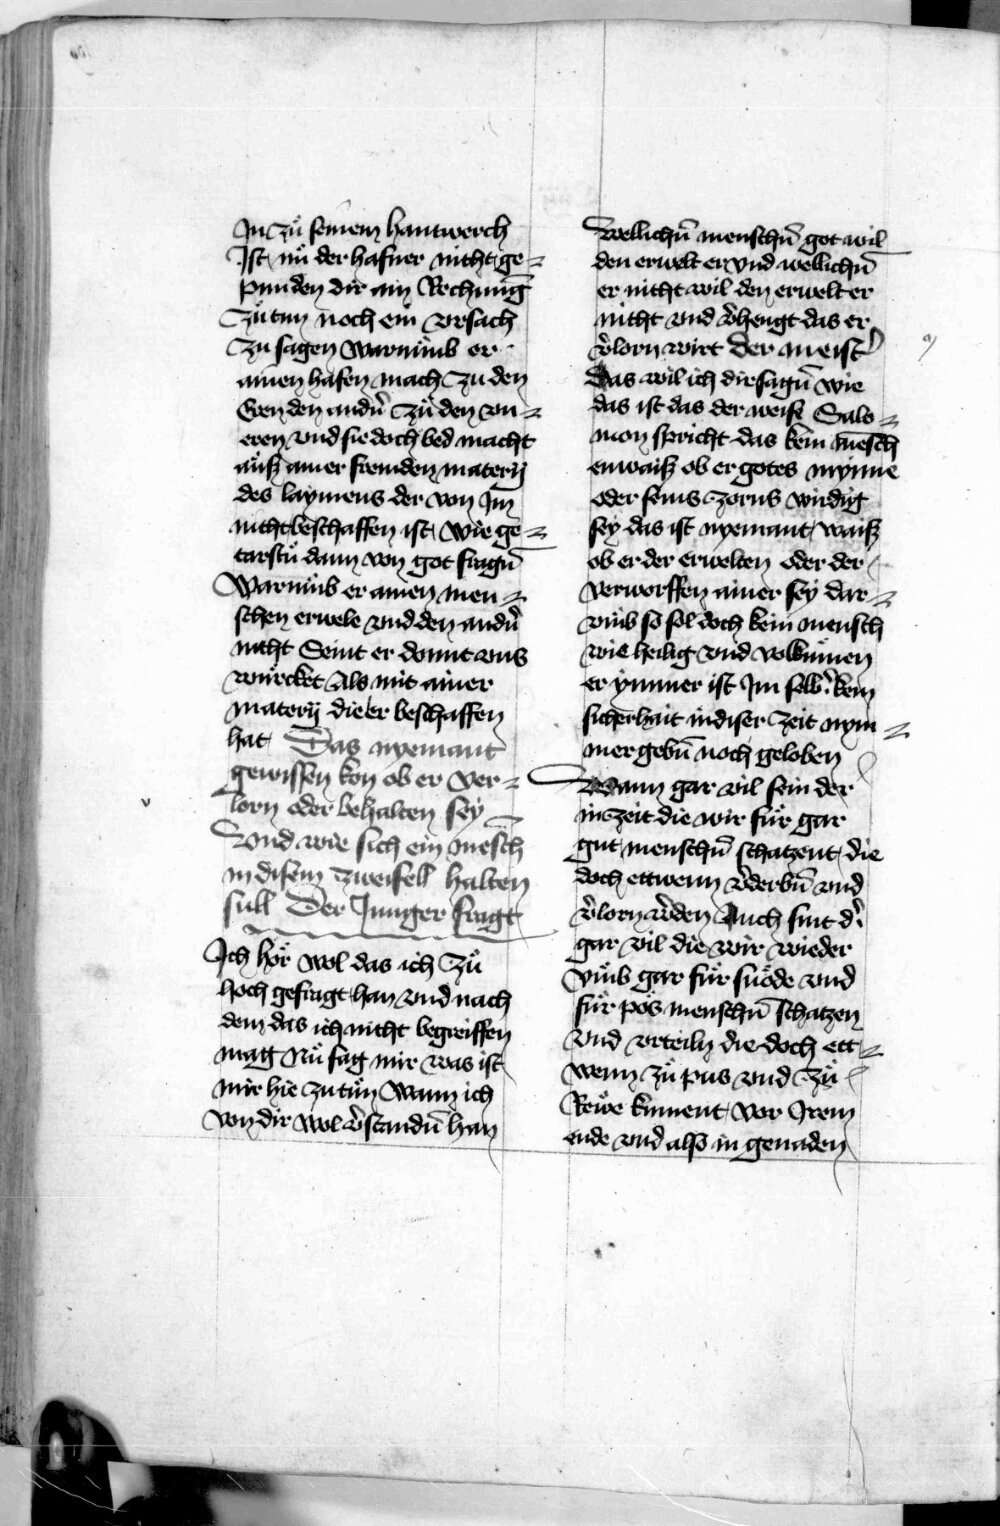 In zů seinem hantwerch
Ist nů der hafner nicht ge=
punden dir ain Rechnung
Zů tun noch ein vrsach
Zu sagen Warumb er
ainen hafen mach zu den
Eren den andn̄ zů den vn=
eren vnd sie doch bed macht
auß ainer fremden matery
des laymens der von Im
nicht beschaffen ist wie ge=
tarstu dann von got fragn̄
Warumb er ainen men=
schen erwele vnd den andn̄
nicht Seint er donnt vns
würcket Als mit ainer
matery die er beschaffen
hat Das nyemant
gewissen kon ob er ver=
lorn oder behalten sey
Vnd wie sich ein mēsch
in disem zweifell halten
sull Der Junger fragt
Ich hör wol das ich zů
hoch gefragt han vnd nach
dem das ich nicht begreiffen
mag Nů sag mir was ist
mir hie zu tůn Wann ich
von dir wol v̄standn̄ han
Wellichn̄ menschn̄ got wil
den erwelt er vnd wellichn̄
er nicht wil den erwelt er
nicht vnd v̄hengt das er
v̄lorn wirt Der meist̄
Das wil ich dir sagn̄ wie
das ist das der weise Salo=
mon spricht das kein mēsch
enwaiß ob er gotes mynne
oder seins zorns wirdig
sey das ist nyemant waiß
ob er der erwelten oder der
verworffen ainer sey dar=
vmb so sol doch kein mensch
wie heilig vnd volkumen
er ymmer ist Im selb̄ kein
sicherhait in diser zeit nym=
mer gebn̄ noch geloben
Wann gar vil sein der
in zeit die wir für gar
gut menschn̄ schatzent die
doch ettwenn v̄derbn̄ vnd
v̄lorn w̄den Auch sint d̄
gar vil die wir wieder
vmb gar für snöde vnd
für pös menschn̄ schatzen
vnd vrteiln die doch ett=
wenn zů pus vnd zů
Rewe kument vor Irem
ende vnd also in genaden